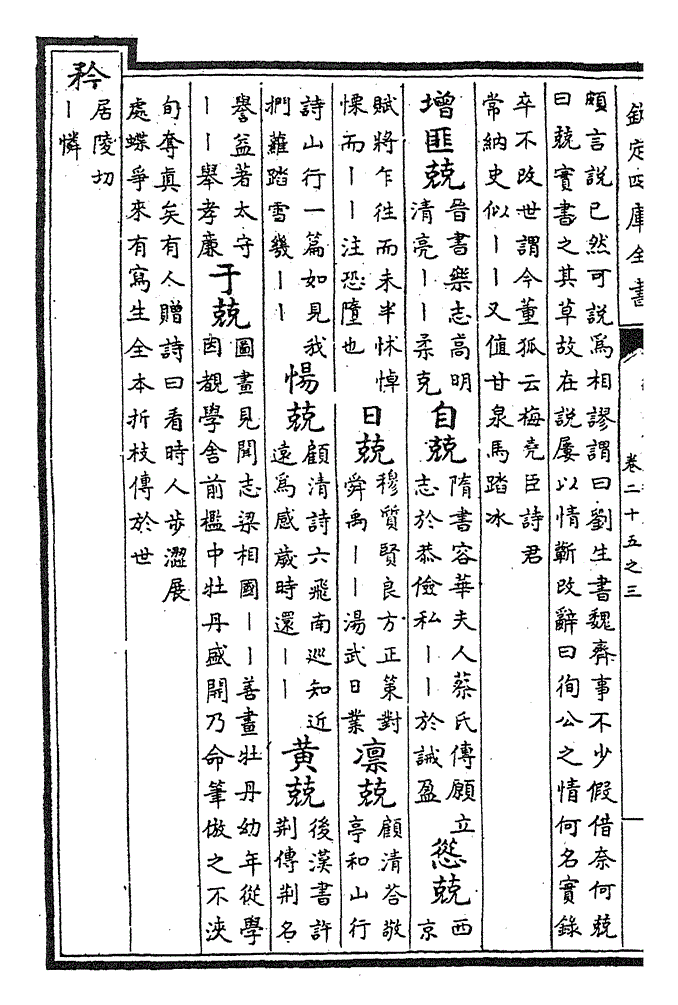 欽定四庫全書
卷二十五之三
頗言說已然可說為相謬謂曰劉生書魏齊事不少假借奈何兢
曰兢實書之其草故在說屢以情蘄改辭曰徇公之情何名實錄
卒不改世謂今董狐云梅堯臣詩君
常納史似丨丨又值甘泉馬踏冰
增匪兢 晉書樂志高明清亮丨丨柔克 自兢 隋書容華夫人蔡氏傳願立志於恭儉私丨丨於誡盈 愆兢 西京
賦將乍往而未半怵悼慄而丨丨注恐墮也 日兢 穆質賢良方正策對舜禹丨丨湯武日業 凛兢 顧清荅敬亭和山行
詩山行一篇如見我捫蘿踏雪幾丨丨 惕兢 顧清詩六飛南巡知近遠為感歲時還丨丨 黃兢 後漢書許荆傳荆名
譽益著太守丨丨舉孝廉 于兢 圖畫見聞志梁相國丨丨善畫牡丹幼年從學因覩學舍前檻中牡丹盛開乃命筆倣之不浹
旬奪真矣有人贈詩曰看時人步澀展
處蝶爭來有寫生全本折枝傳於世
矜 居陵切丨憐